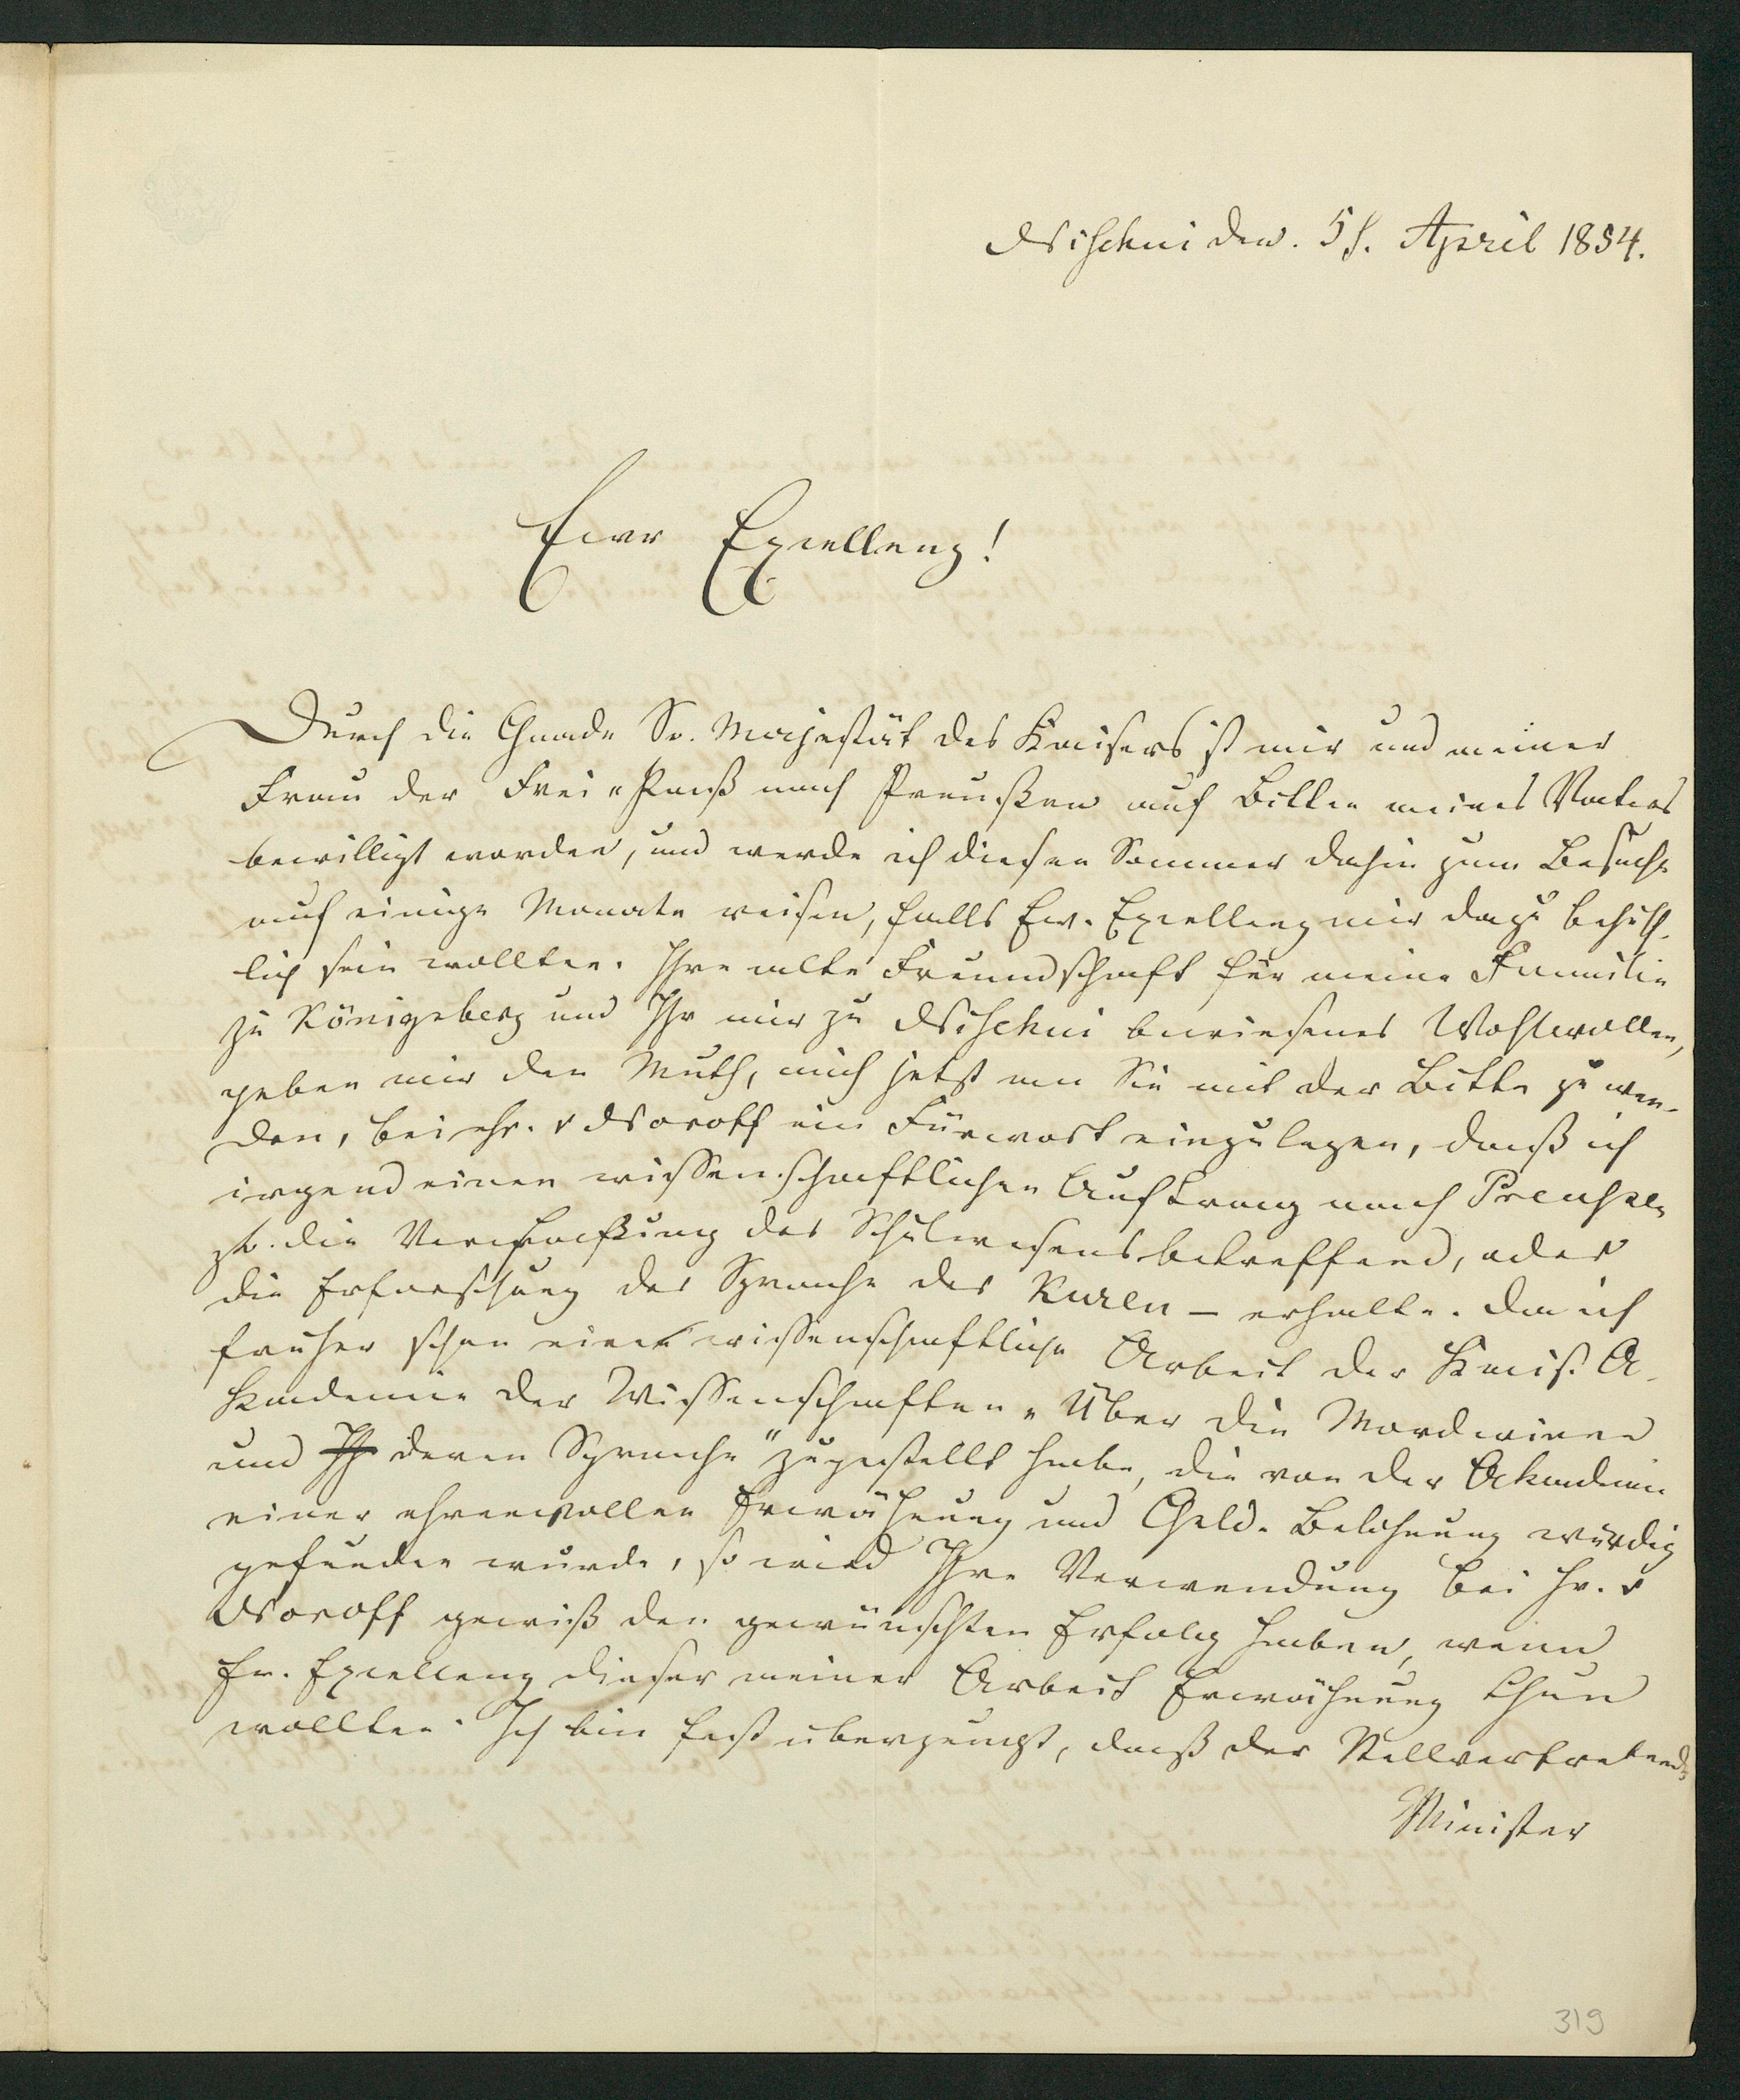 Nischni den. 5t. April 1854.
Euer Excellenz!
Durch die Gnade Sr. Majestät des Kaisers ist mir und meiner
Frau der Frei-Paß nach Preußen auf Bitten meines Vaters
bewilligt worden, und werde ich diesen Sommer dahin zum Besuche
auf einige Monate reisen, falls Ew. Excellenz mir dazu behülf-
lich sein wollten. Ihre alte Freundschaft für meine Familie
zu Königsberg und Ihr mir zu Nischni bewiesenes Wohlwollen,
geben mir den Muth, mich jetzt an Sie mit der Bitte zu wen-
den, bei Hr. v Noroff ein Fürwort einzulegen, daß ich
irgend einen wissenschaftlichen Auftrag nach Preußen
zb. die Verfassung des Schulwesens betreffend, oder
die Erforschung der Sprache der Kuren – erhalte. Da ich
fruher schon eine wissenschaftliche Arbeit der Kais. A-
kademie der Wissenschaften „Über die Mordwinen
und deren Sprache" zugestellt habe, die von der Akademie
einer ehrenvollen Erwähnung und Geld-Belohnung würdig
gefunden wurde, so wird Ihre Verwendung bei Hr. v
Noroff gewiß den gewünschten Erfolg haben, wenn
Ew. Excellenz dieser meiner Arbeit Erwähnung thun
wollten. Ich bin fest uberzeugt, daß der Stellvertretende
Minister
319